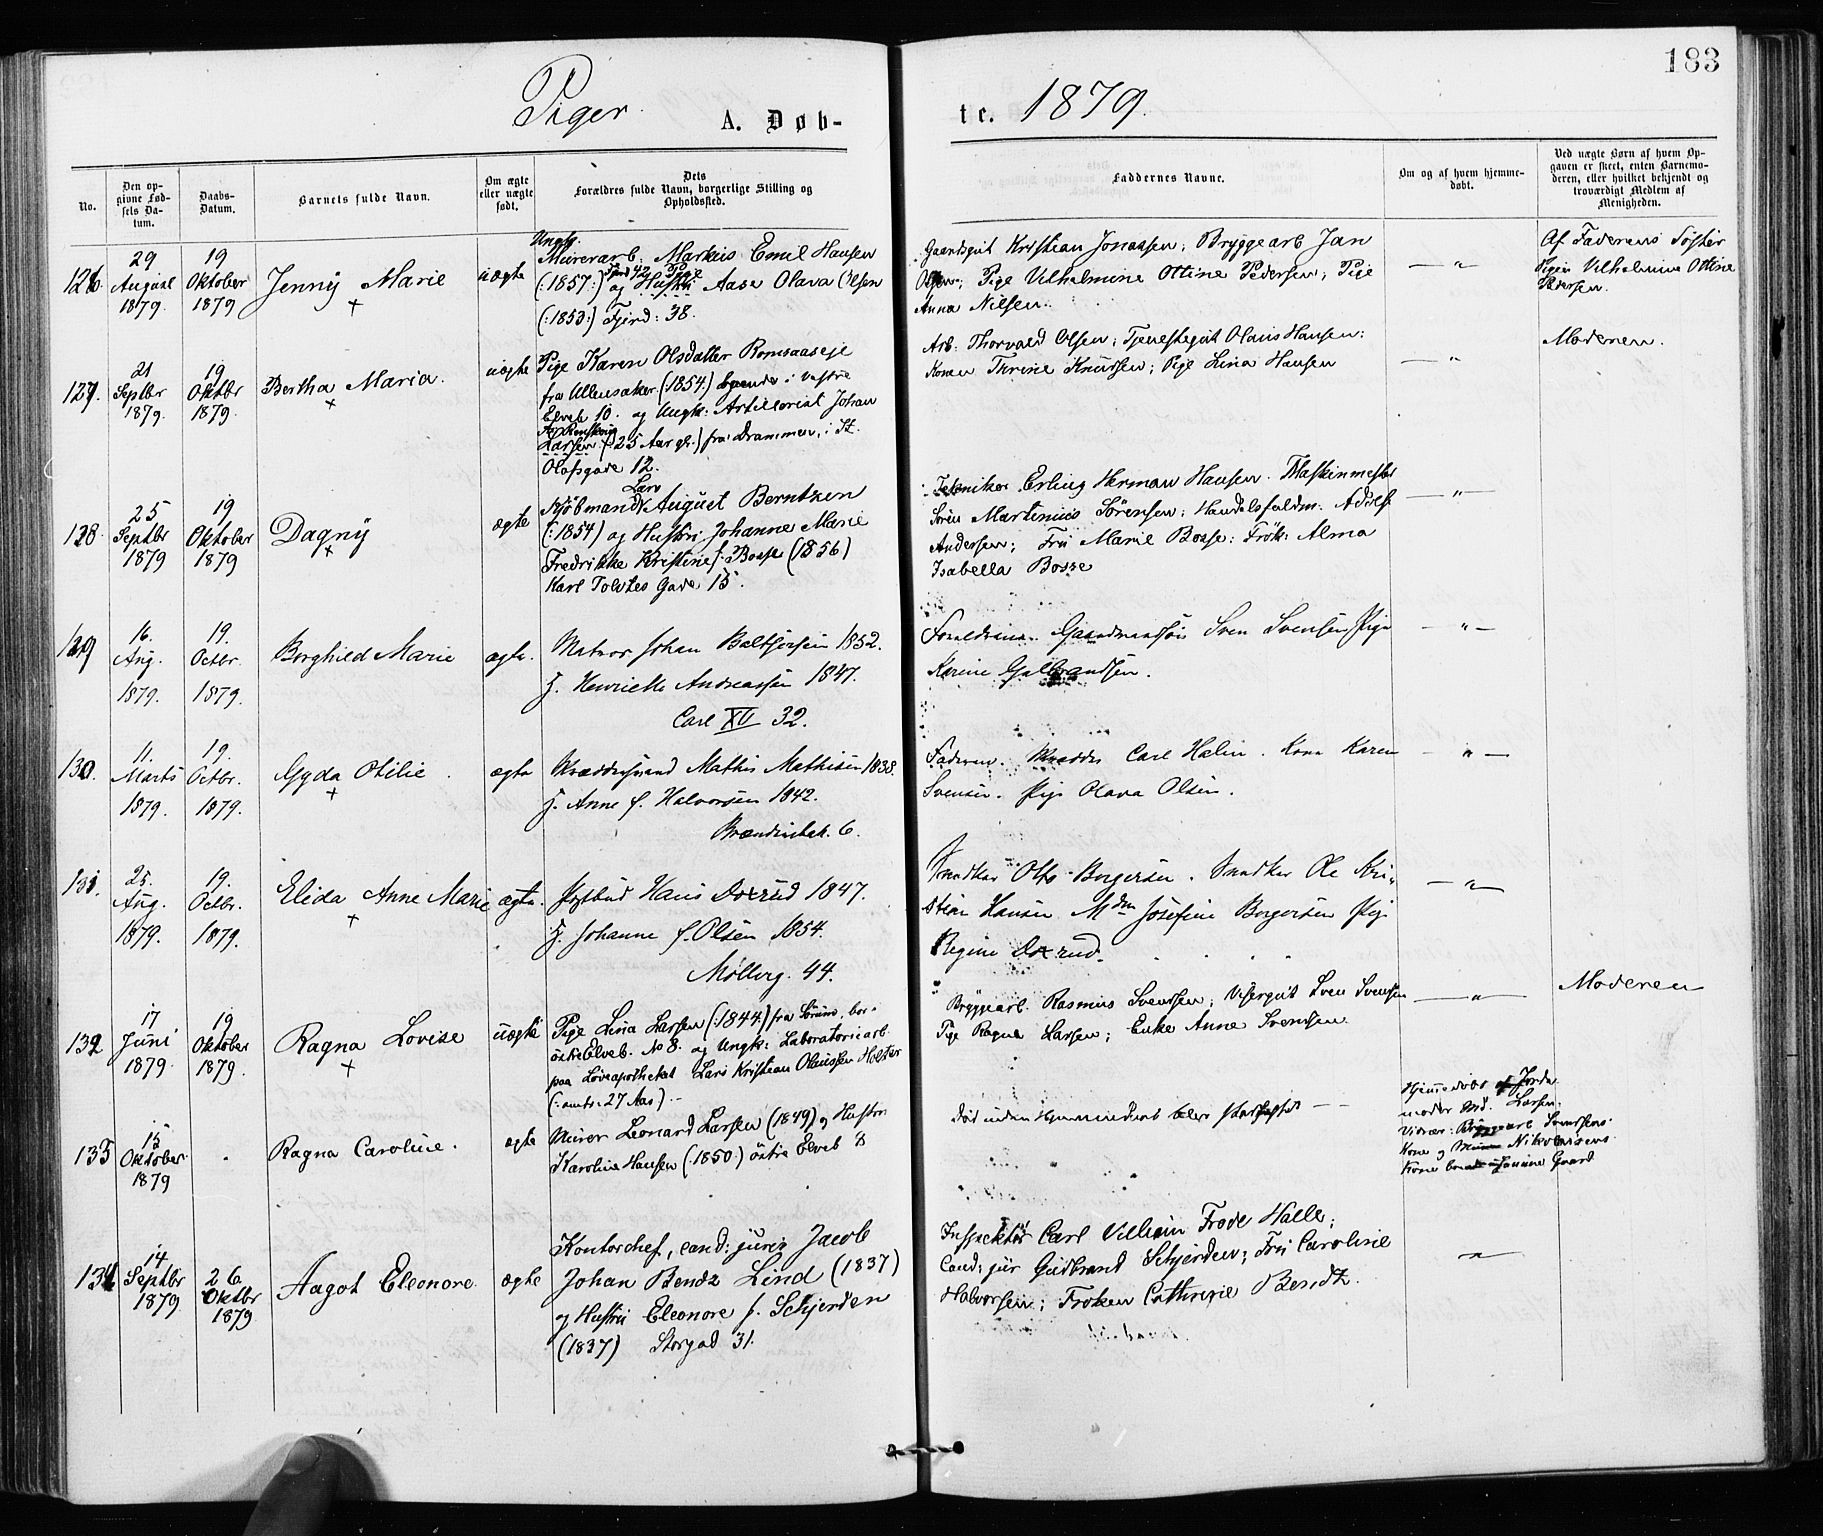 183
Piger A. Døb-te. 1879.
No.
Den op-
givne Fød-
sels Da-
tum.
Daabs-
Datum.
Barnets fulde Navn.
Om ægte
eller uægte
født.
Dets
Forældres fulde Navn, borgerlige Stilling og
Opholdssted.
Faddernes Navne.
Om og af hvem hjemme-
døbt.
Ved uægte Børn af hvem Op-
gaven er skeet, enten Barnemo-
deren, eller hvilket bekjendt og
troværdigt Medlem af
Menigheden.
126.
29
August
1879.
19
Oktober
1879
Jenny Marie
+
uægte
Ungk.
Murerarb. Markus Emil Hansen
(:1857:) Fjerd 42 og Pige Hustru Aase Olava Olsen
(:1853:) Fjerd: 38.
Gaardsgut Kristian Jonassen; Bryggearb Jan
Olsen; Pige Vilhelmine Ottine Pedersen; Pige
Anna Nilsen.
— " —
Af Faderens Søster
Pigen Vilhelmine Ottine
Pedersen.
127.
21
Septbr
1879.
19
Oktbr
1879.
Bertha Maria.
+
uægte
Pige Karen Olsdatter Romsaaseje
fra Ullensaker (1854.) boende i vestre
Elveb 10. og Ungk: Artillerist Johan
Larsen (:25 Aar gl.) fra Drammen, i St.
Olafsgade 12.
Arb: Thorvald Olsen; Tjenestegut Olaus Hansen:
Konen Thrine Knutsen; Pige Lina Hansen
— " —
Moderen.
128.
25
Septbr
1879
19
Oktober
1879
Dagny
+
ægte
Lars
Kjøbmand August Berntzen
(:1854) og Hustru Johanne Marie
Fredrikke Kristine f. Bosse (1856)
Karl Tolvtes Gade 15.
Tekniker Erling Herman Hansen. Maskinmester
Sören Martinius Sörensen; Handelsfuldm. Adolf
Andersen; Fru Marie Bosse: Frök: Alma
Isabella Bosse
— " —
129
16.
Aug.
1879.
19.
Octbr.
1879.
Borghild Marie
ægte.
Matros Johan Baltzersen 1852.
H. Henriette Andreassen 1847.
Carl XII 32.
Forældrene. Gaardmandsön Sven Svensen Pige
Karine Gulbrandsen.
— " —
130.
11.
Marts
1879.
19.
Octbr.
1879.
Gyda Otilie.
+
ægte
Skræddersvend Mathis Mathisen 1838.
H. Anne f. Halvorsen 1842.
6.
Faderen. Skrædder Carl Helin. Kone Karen
Svensen. Pige Olava Olsen.
— " —
131.
25.
Aug.
1879.
19.
Octbr.
1879.
Elida Anne Marie
+
ægte.
Hans Doxrud 1847.
H. Johanne f. Olsen 1854.
Møllerg. 44.
Snedker Otto Borgersen. Snedker Ole Kri-
stian Hansen Mdm Josefine Borgersen Pige
Regine Doxrud.
— " —
132
17
Juni
1879
19
Oktober
1879.
Ragna Lovise
+
uægte
Pige Lina Larsen (:1844:) fra Sörum, bor
östre Elveb. No 8. og Ungk: Laboratoriearb.
paa Løveapotheket Lars Kristian Olaussen Holster
(:omtr: 27 Aar)
Bryggearb. Rasmus Svensen; Visergut Sven Svensen
Pige Ragna Larsen; Enke Anne Svensen.
— " —
Moderen
133
15
Oktober
1879
Ragna Caroline.
ægte
Murer Leonard Larsen (1849) og Hustru
Karoline Hansen (:1850:) östre Elveb 8
Död uden Hjemmedaab blev stadfæstet — —
Hjemmedöbt af Jorde-
moder Md. Larsen.
Vidner: Bryggearb Svensens
Kone og Nikolaisens
Kone
134
14
Septbr
1879
26
Oktbr
1879
Aagot Eleonore
ægte
Kontorchef, cand: juris Jacob
Johan Bendz Lind (1837)
og Hustru Eleonore f. Schjerden
(1837) Storgad 31.
Inspektör Carl Vilhelm Frode Halle;
Cand: jur Gudbrand Schjerden; Fru Caroline
Halvorsen; Fröken Cathrine Bendz.
— " —